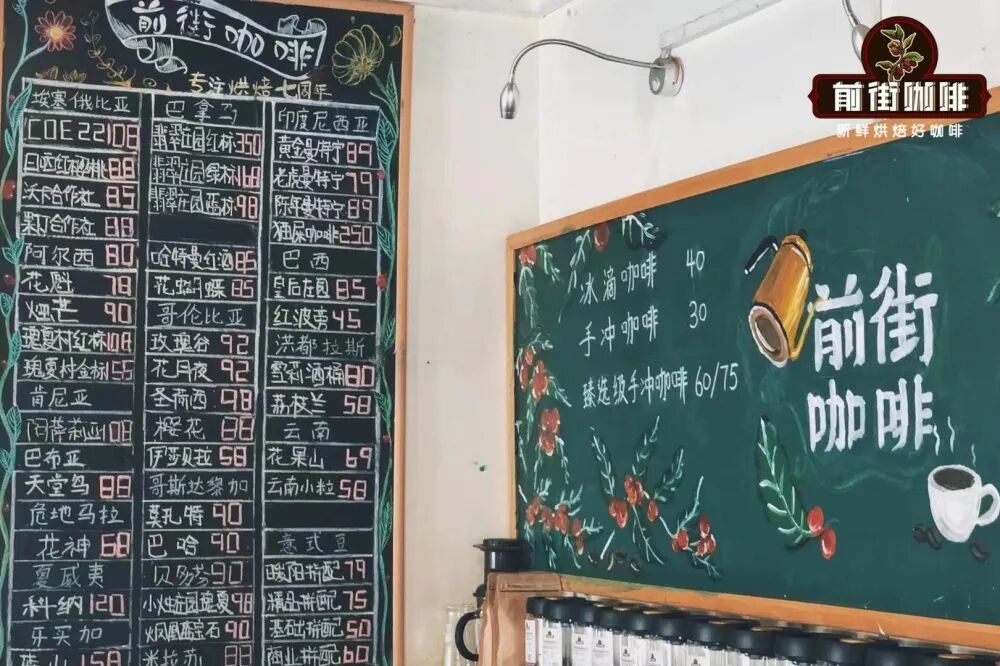 前街咖啡
专注烘焙七周年
埃塞俄比亚
COE 22 108
日晒红樱桃 88
沃卡合作社 85
果丁合作社 88
阿尔西 80
花魁 78
烛芒 90
瑰夏村红标 108
瑰夏村金标 155
肯尼亚
阿萨莉亚 108
巴布亚
天堂鸟 88
危地马拉
花神 68
夏威夷
科纳 120
牙买加
158
巴拿马
翡翠庄园红标 350
翡翠庄园绿标 168
翡翠庄园蓝标 98
哈特曼红酒 85
花蝴蝶 85
哥伦比亚
玫瑰谷 92
花月夜 92
圣荷西 98
樱花 88
伊莎贝拉 58
哥斯达黎加
莫扎特 90
巴哈 90
贝多芬 90
小烛庄园瑰夏 98
火凤凰宝石 90
米拉苏 88
印度尼西亚
黄金曼特宁 89
老虎曼特宁 79
陈年曼特宁 89
猫屎咖啡 250
巴西
皇后庄园 85
红波旁 45
洪都拉斯
雪莉酒桶 80
荔枝兰 58
云南
花果山 69
云南小粒 58
意式豆
暖阳拼配 79
精品拼配 75
基础拼配 50
商业拼配 60
冰滴咖啡 40
手冲咖啡 30
臻选级手冲咖啡 60/75
前街
咖啡
前街咖啡
新鲜烘焙好咖啡